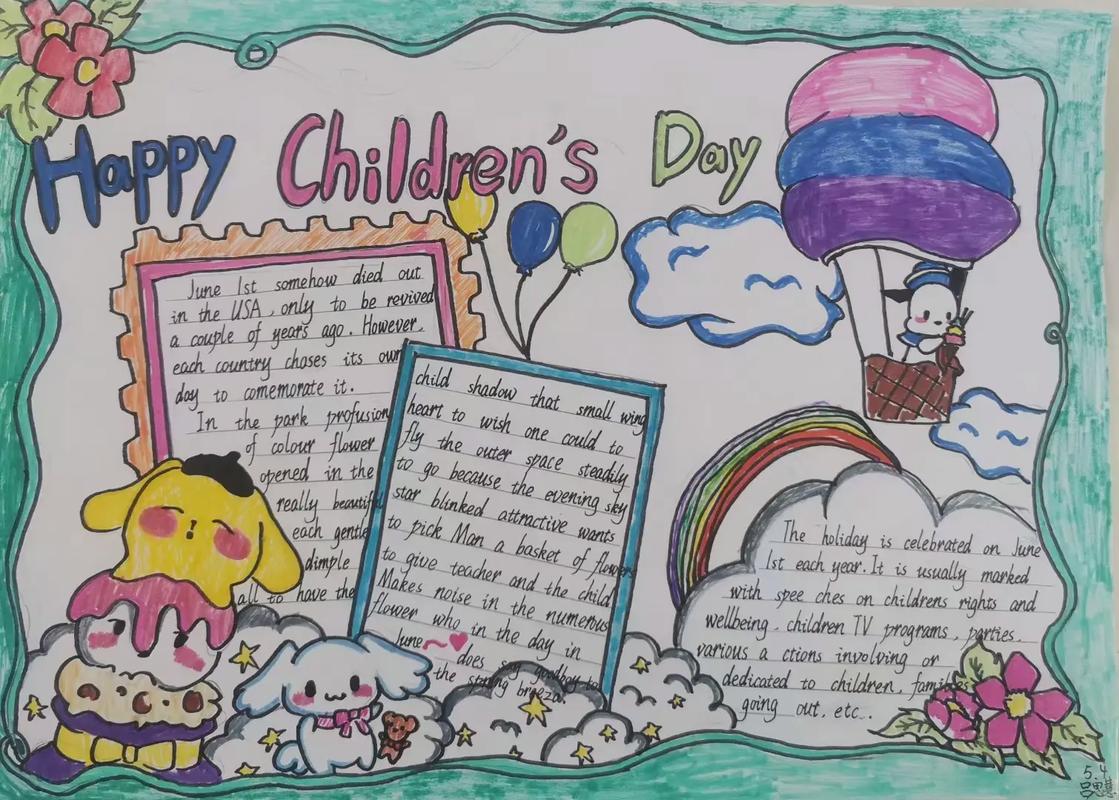 Happy Children's Day
June 1st somehow died out
in the USA, only to be revived
a couple of years ago. However,
each country choses its own
day to comemorate it.
In the park profusion
of colour flower
opened in the
really beautiful
each gentle
dimple
all to have the
child shadow that small wing
heart to wish one could to
fly the outer space steadily
to go because the evening sky
star blinked attractive wants
to pick Man a basket of flowers
to give teacher and the child
Makes noise in the numerous
flower who in the day in
June does say goodbye to
the spring breeze.
The holiday is celebrated on June
1st each year. It is usually marked
with spee ches on childrens rights and
wellbeing, children TV programs, parties,
various a ctions involving or
dedicated to children, families
going out, etc..
5.4